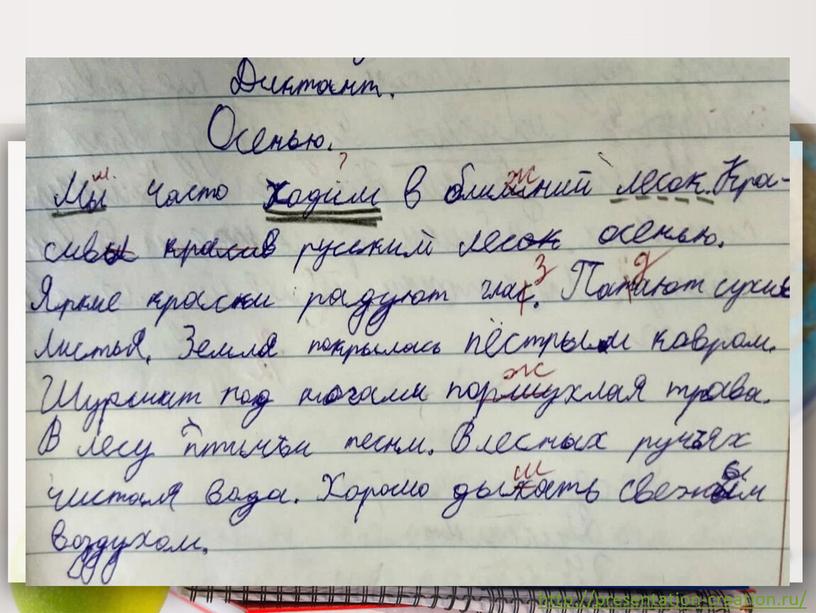 Диктант.
Осенью.
Мы часто ходим в ближний лесок. Кра-
сивы красив русский лесок осенью.
Яркие краски радуют глаз. Патают сухие
листья. Земля покрылась пёстрым ковром.
Шуршит под ногами поршухлая трава.
В лесу птичьи песни. В лестых ручьях
чистая вода. Хорошо дыжать свежым
воздухом.
http://presentation-creation.ru/